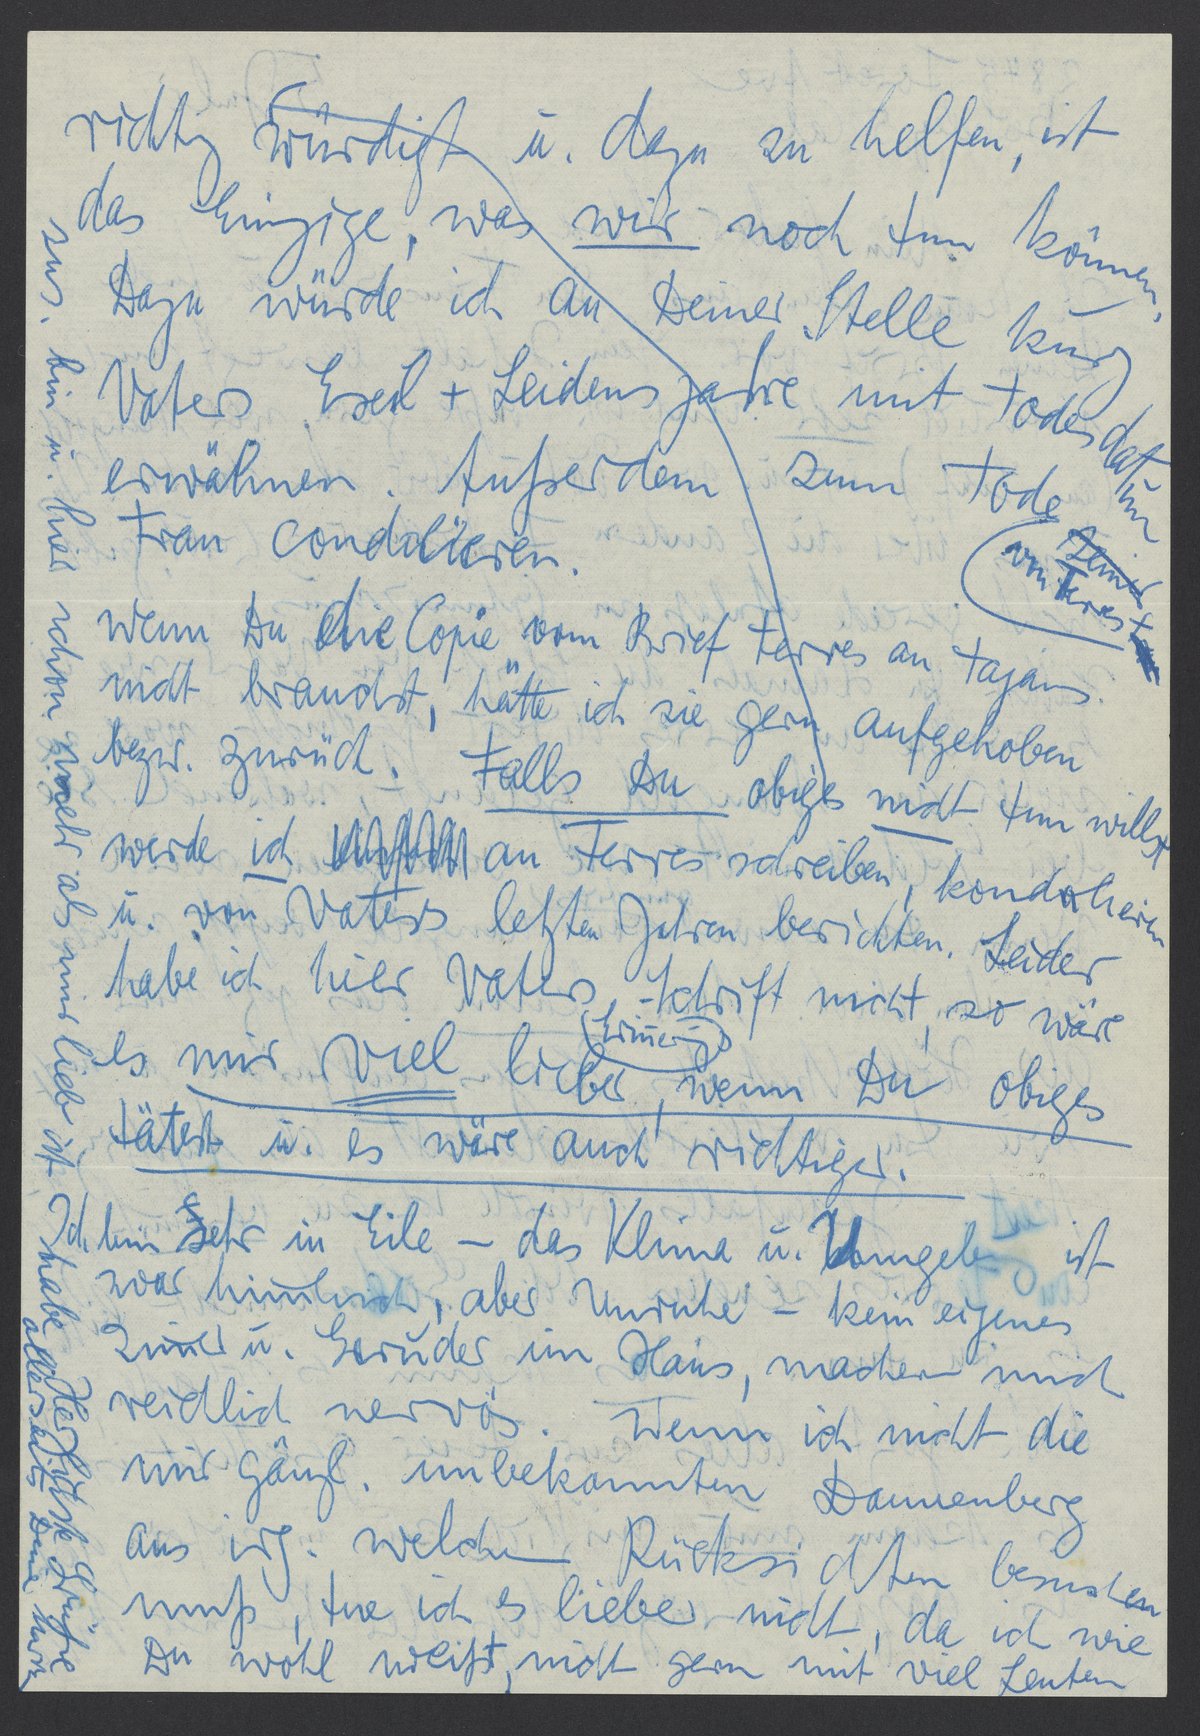 richtig würdigt u. dazu zu helfen, ist
das Einzige, was wir noch tun können.
Dazu würde ich an Deiner Stelle kurz
Vaters Exil + Leidensjahre mit Todesdatum
erwähnen. Außerdem zum Tode seiner
von Terres
Frau condolieren.
Wenn Du die Copie vom Brief Terres an Tajans
nicht brauchst, hätte ich sie gern aufgehoben
bezw. zurück. Falls Du obiges nicht tun willst
werde ich an Terres schreiben, kondolieren
u. von Vaters letzten Jahren berichten. Leider
habe ich hier Vaters Schrift nicht, so wäre
(Erinner-g)
es mir viel lieber, wenn Du obiges
tätest u. es wäre auch richtiger.
Ich bin sehr in Eile – das Klima u. Umgeb ist
zwar himmlisch, aber Unruhe – kein eigenes
Zimmer u. Geruder im Haus, machen mich
reichlich nervös. Wenn ich nicht die
mir gänzl. unbekannten Dannenberg
aus irg. welchen Rücksichten besuchen
muß, tue ich es lieber nicht, da ich wie
Du wohl weißt, nicht gern mit viel Leuten
zus. bin u. hier schon mehr als mir lieb ist habe
Herzlichste Grüße
allerseits Deine